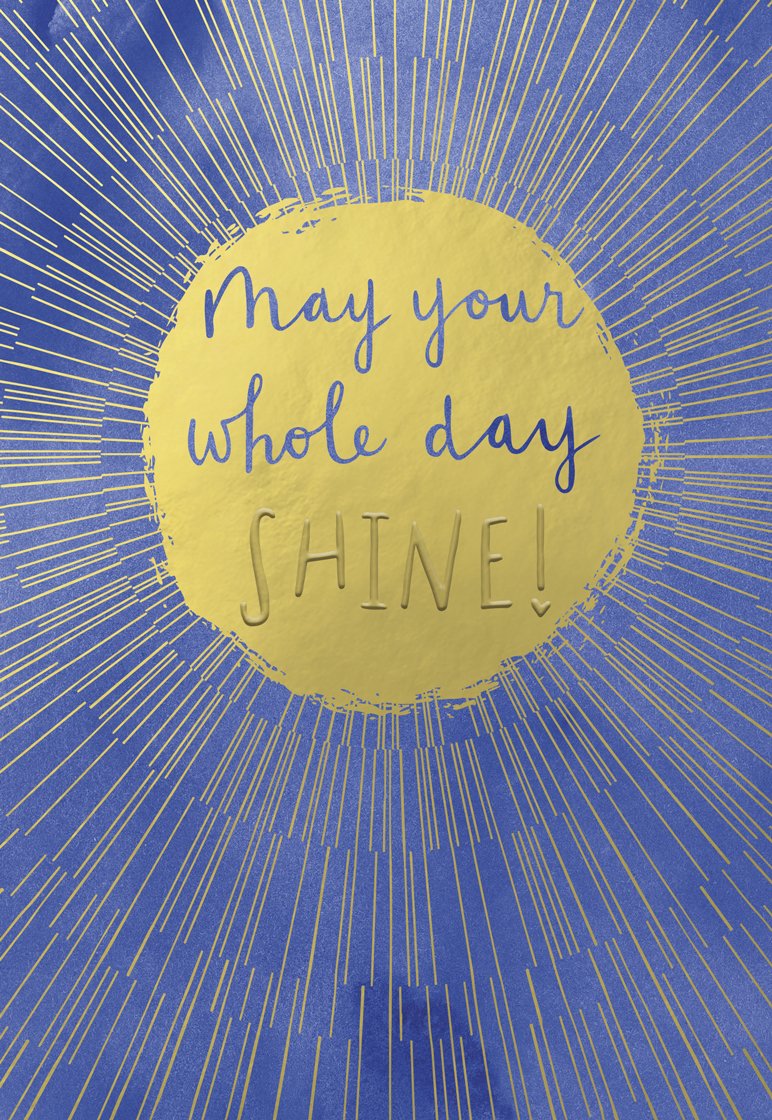 May your
whole day
SHINE!